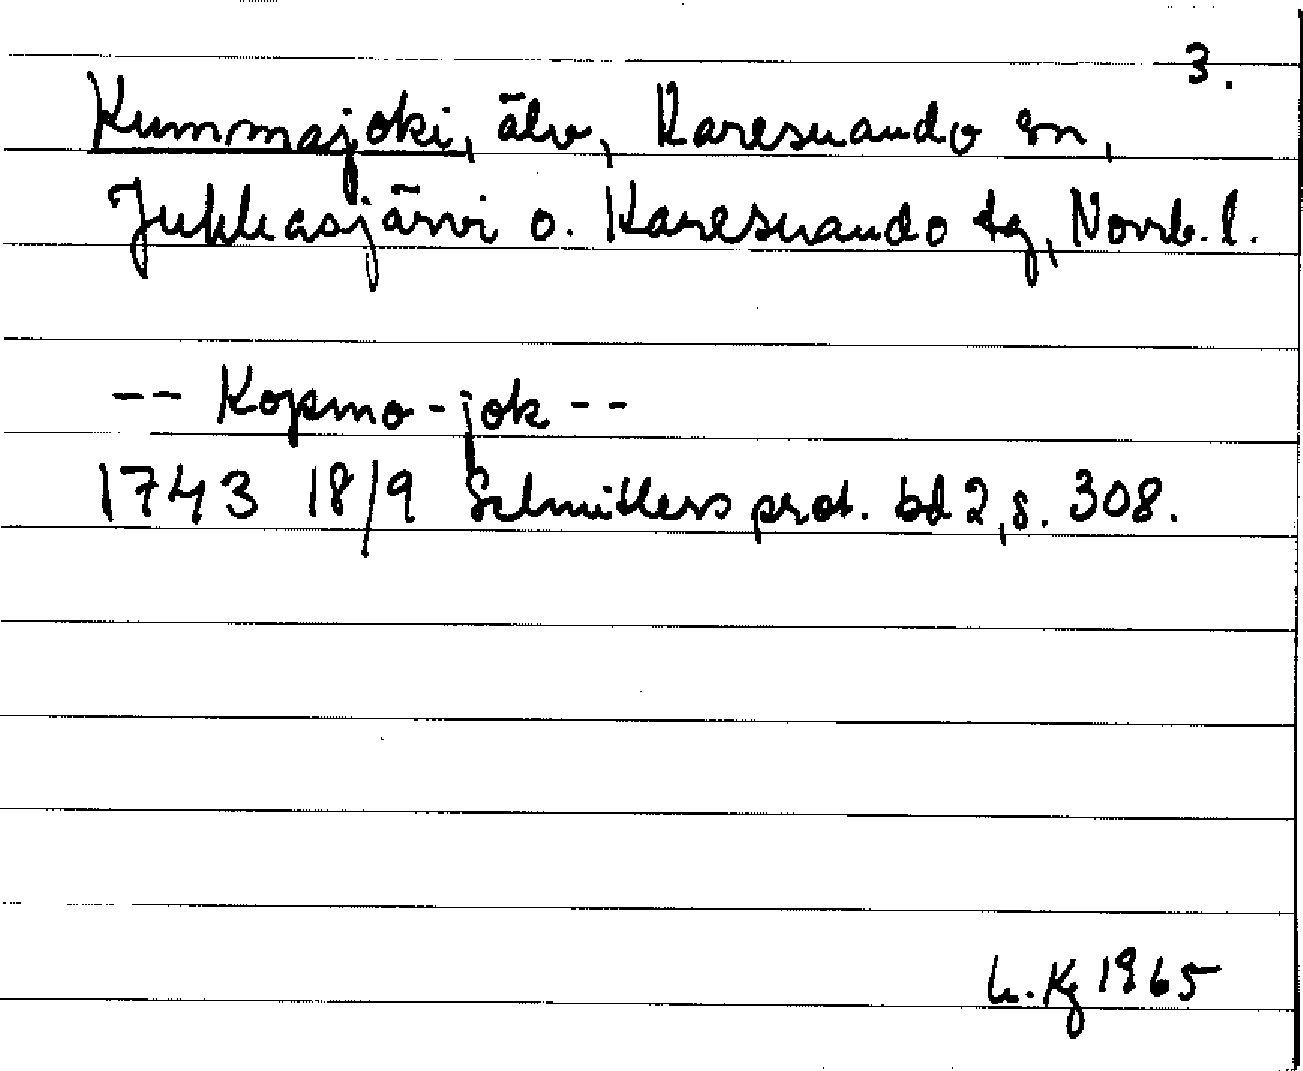 3.
Kummajoki, älv, Karesuando sn,
Jukkasjärvi o. Karesuando tg, Norrb. l.
-- Kopmo-jok --
1743 18/9 Schnitlers prot. bd 2, s. 308.
h. Kg 1965